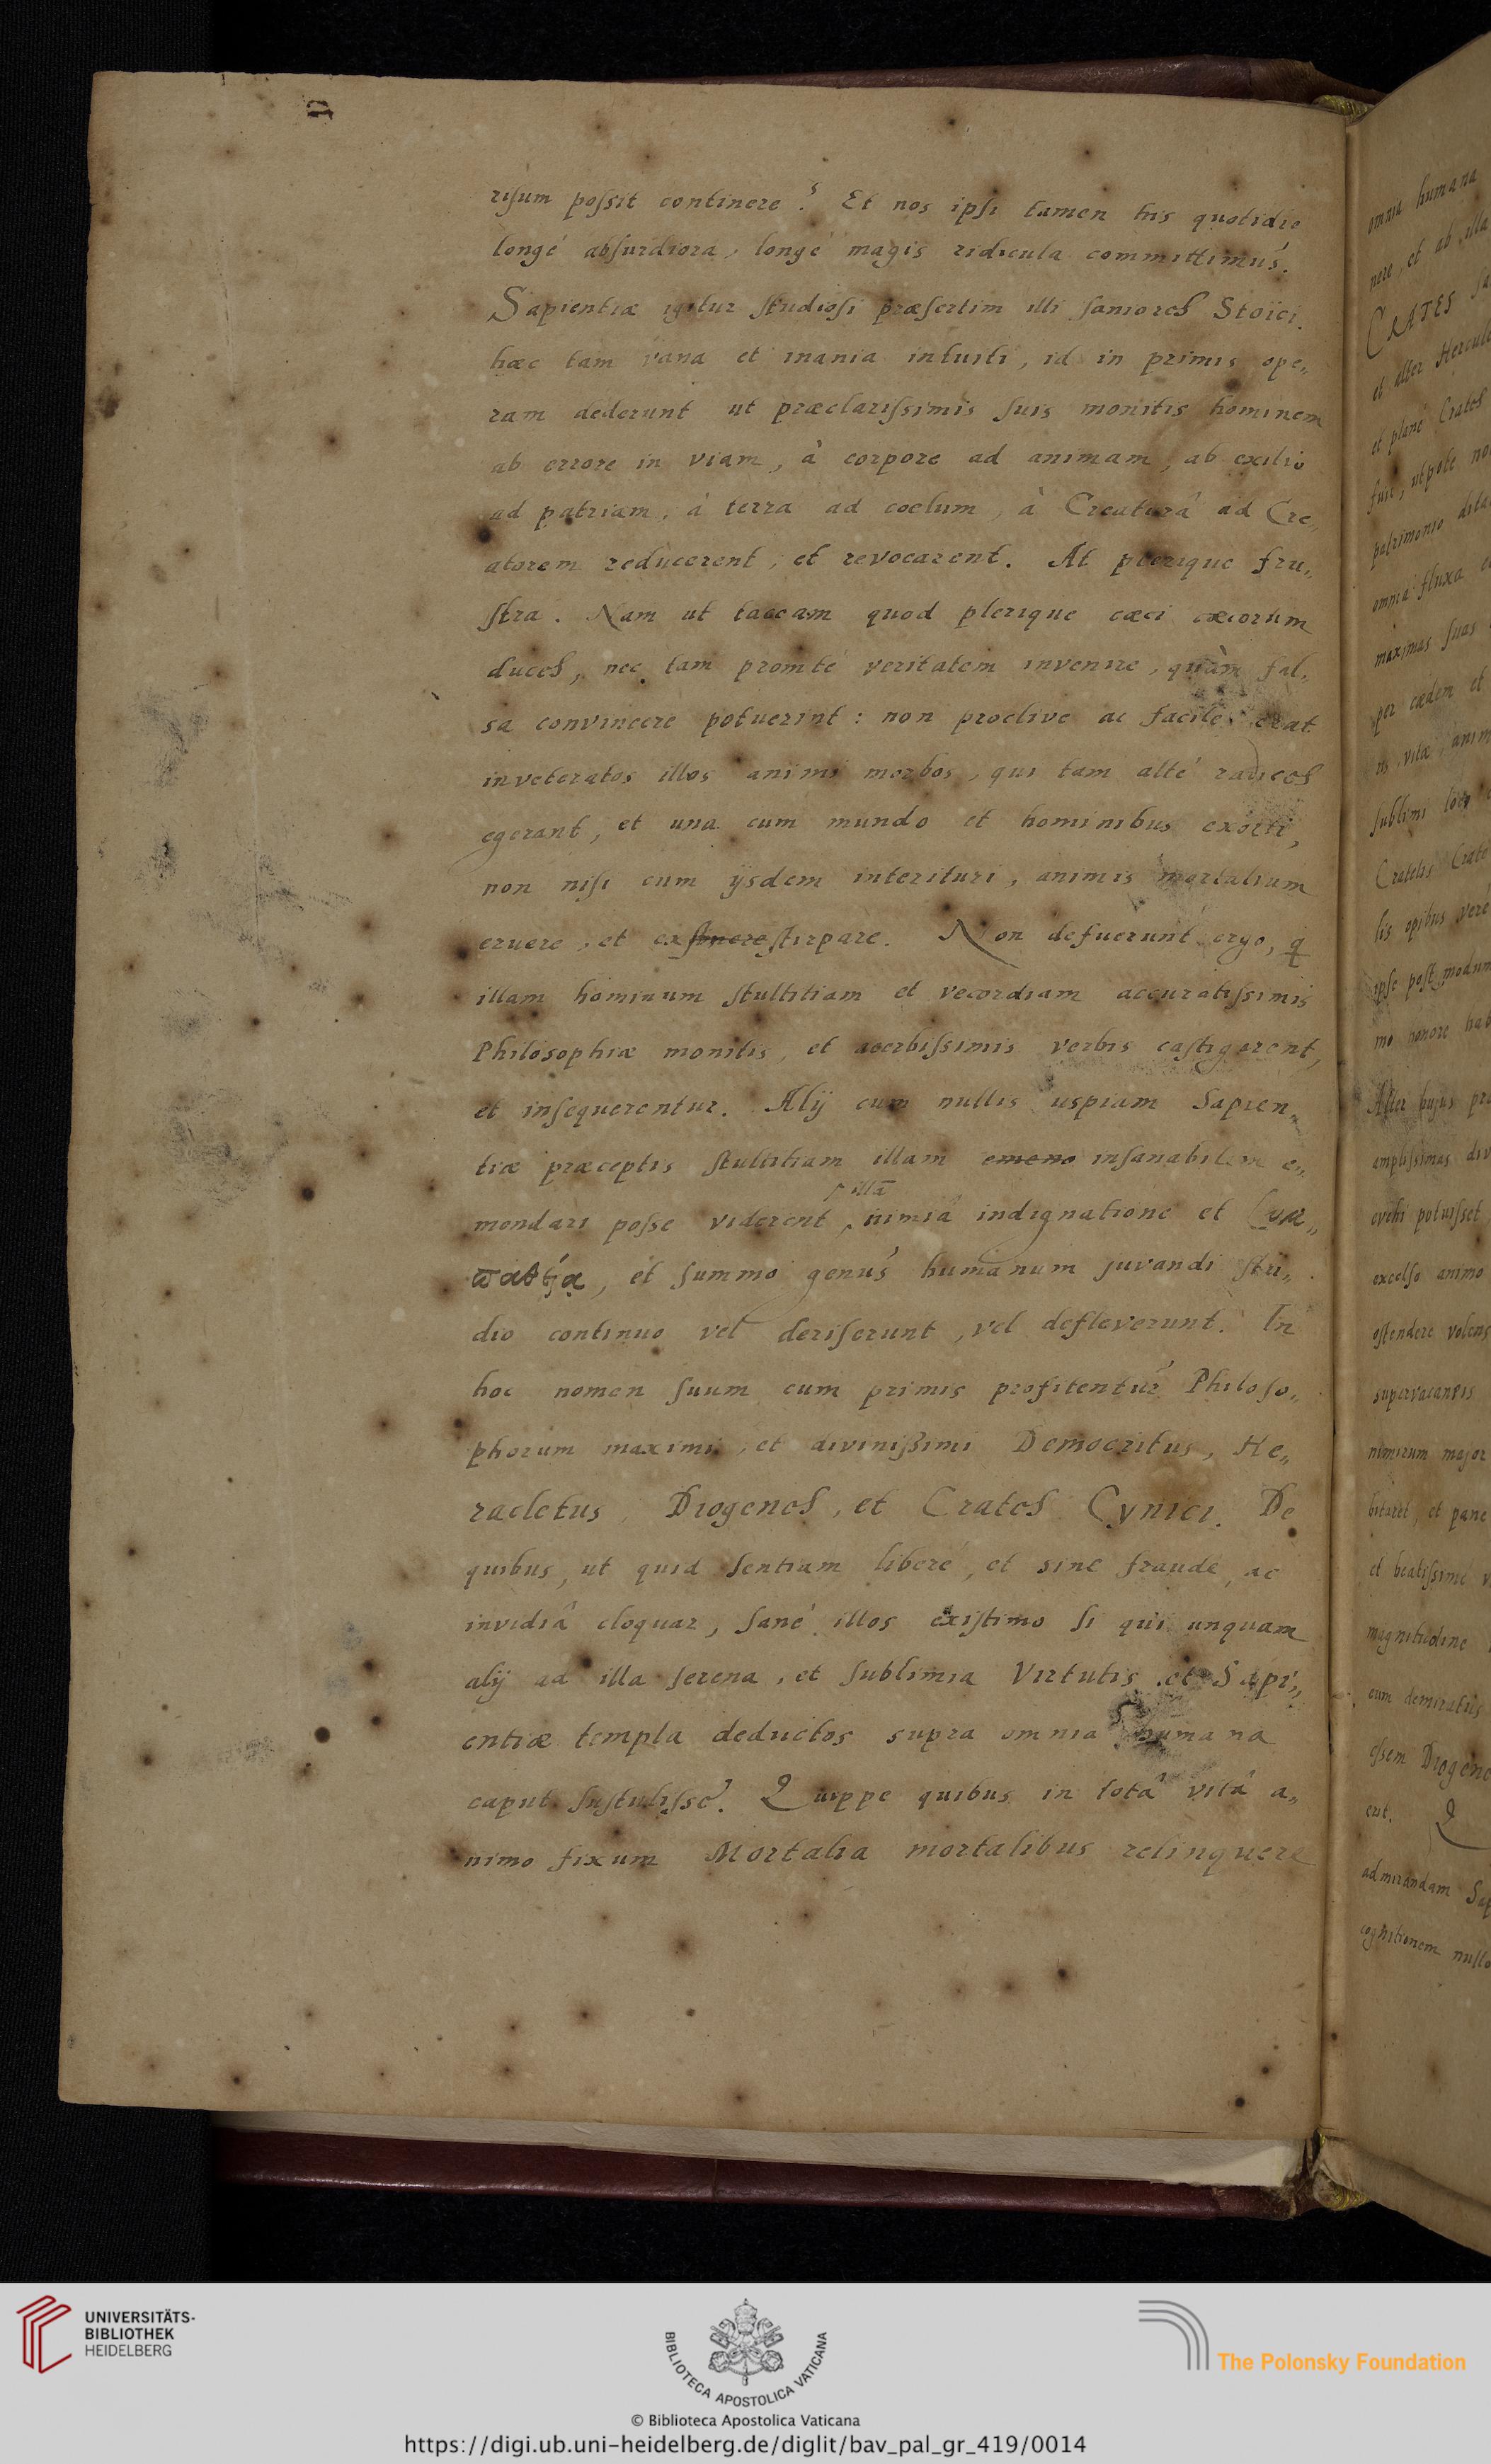 risum possit continere? Et nos ipsi tamen his quotidie
longé absurdiora, longé magis ridicula committimus.
Sapientiæ igitur studiosi præsertim illi saniores Stoici.
hæc tam vana et inania intuiti, id in primis ope„
ram dederunt ut præclarissimis suis monitis hominem
ab errore in viam, à corpore ad animam, ab exilio
ad patriam, á terra ad coelum, à Creaturâ ad Cre„
atorem reducerent, et revocarent. At plerique fru„
stra. Nam ut taceam quod plerique cæci cæcorum
duces, nec tam promté veritatem invenire, quàm fal„
sa convincere potuerint: non proclive ac facile erat
inveteratos illos animi morbos, qui tam alté radices
egerant, et una cum mundo et hominibus exorti,
non nisi cum ijsdem interituri, animis mortalium
eruere, et exstirpare. Non defuerunt ergo, q
illam hominum stultitiam et vecordiam accuratissimis
Philosophiæ monitis, et acerbissimis verbis castigarent,
et insequerentur. Alij cum nullis uspiam Sapien„
tiæ præceptis stultitiam illam emene insanabilem e„
illã
mendari posse viderent, nimiâ indignatione et
et summo genus humanum juvandi stu„
dio continuo vel deriserunt, vel defleverunt. In
hoc nomen suum cum primis profitentur Philoso„
phorum maximi, et divinißimi Democritus, He„
racletus, Diogenes, et Crates Cynici. De
quibus, ut quid sentiam liberé, et sine fraude, ac
invidiâ eloquar, sané illos existimo si qui unquam
alij ad illa serena, et sublimia Virtutis et Sapi„
entiæ templa deductos supra omnia humana
caput sustulisse. Quippe quibus in totâ vitâ a„
nimo fixum Mortalia mortalibus relinquere
omnia humana
nere, et ab illa
CRATES
et alter
et plané Crates
fuit, utpote
patrimonio
omnia fluxa
maximas suas
per cædem et
vitæ
sublimi loco
Cratetis
lis opibus veré
ipse post modum
mo honore
Alter hujus
amplissimas
evehi potuisset
excelso animo
ostendere volens
supervacaneis
nimirum major
et pane
et beatissimé
magnitudine
eum demiratus
essem
erit. Q
admirandam
cognitionem
UNIVERSITÄTS-
BIBLIOTHEK
HEIDELBERG
BIBLIOTECA APOSTOLICA VATICANA
The Polonsky Foundation
© Biblioteca Apostolica Vaticana
https://digi.ub.uni-heidelberg.de/diglit/bav_pal_gr_419/0014